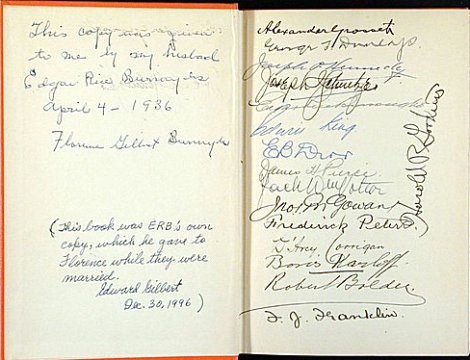 This copy was given
to me by my husbad
Edgar Rice Burroughs
April 4 - 1936
Florence Gilbert Burroughs
(This book was ERB's own
copy, which he gave to
Florence while they were
married.
Edward Gilbert
Dec. 30, 1996)
Alexander Grosset
George T Dunlap
Joseph
Joseph
King
EB
James H Pierce
Jack
Jno. B. Gowan
Frederick Peters
D'Arcy Corrigan
Boris Karloff
Robert Bolder
F. J. Franklin
Harold R.